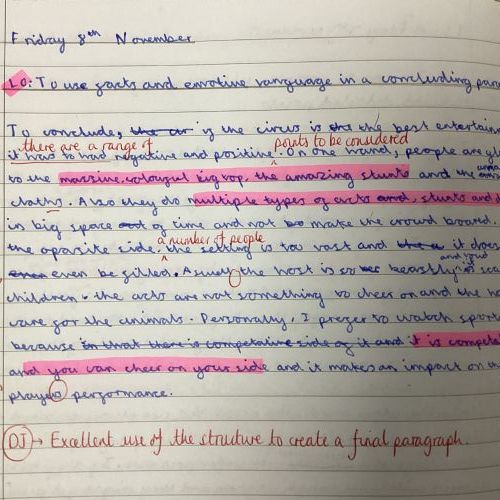 Friday 8th November
LO: To use facts and emotive language in a concluding para
To conclude, if the circus is the best entertain
there are a range of points to be considered
it has to had negative and positive. On one hand, people are gl
to the massive, colourful big top, the amazing stunts and the
cloths. Also they do multiple types of acts and, stunts and d
in big space out of time and not make the crowd board.
a number of people
the oposite side, the setting is too vast and it does
even be filled. Aswell the host is so beastly and
children. the acts are not something to cheer on and the h
care for the animals. Personally, I prefer to watch sport
because in that there is competaive side of it and it is compet
and you can cheer on your side and it makes an impact on th
players performance.
DJ → Excellent use of the structure to create a final paragraph.